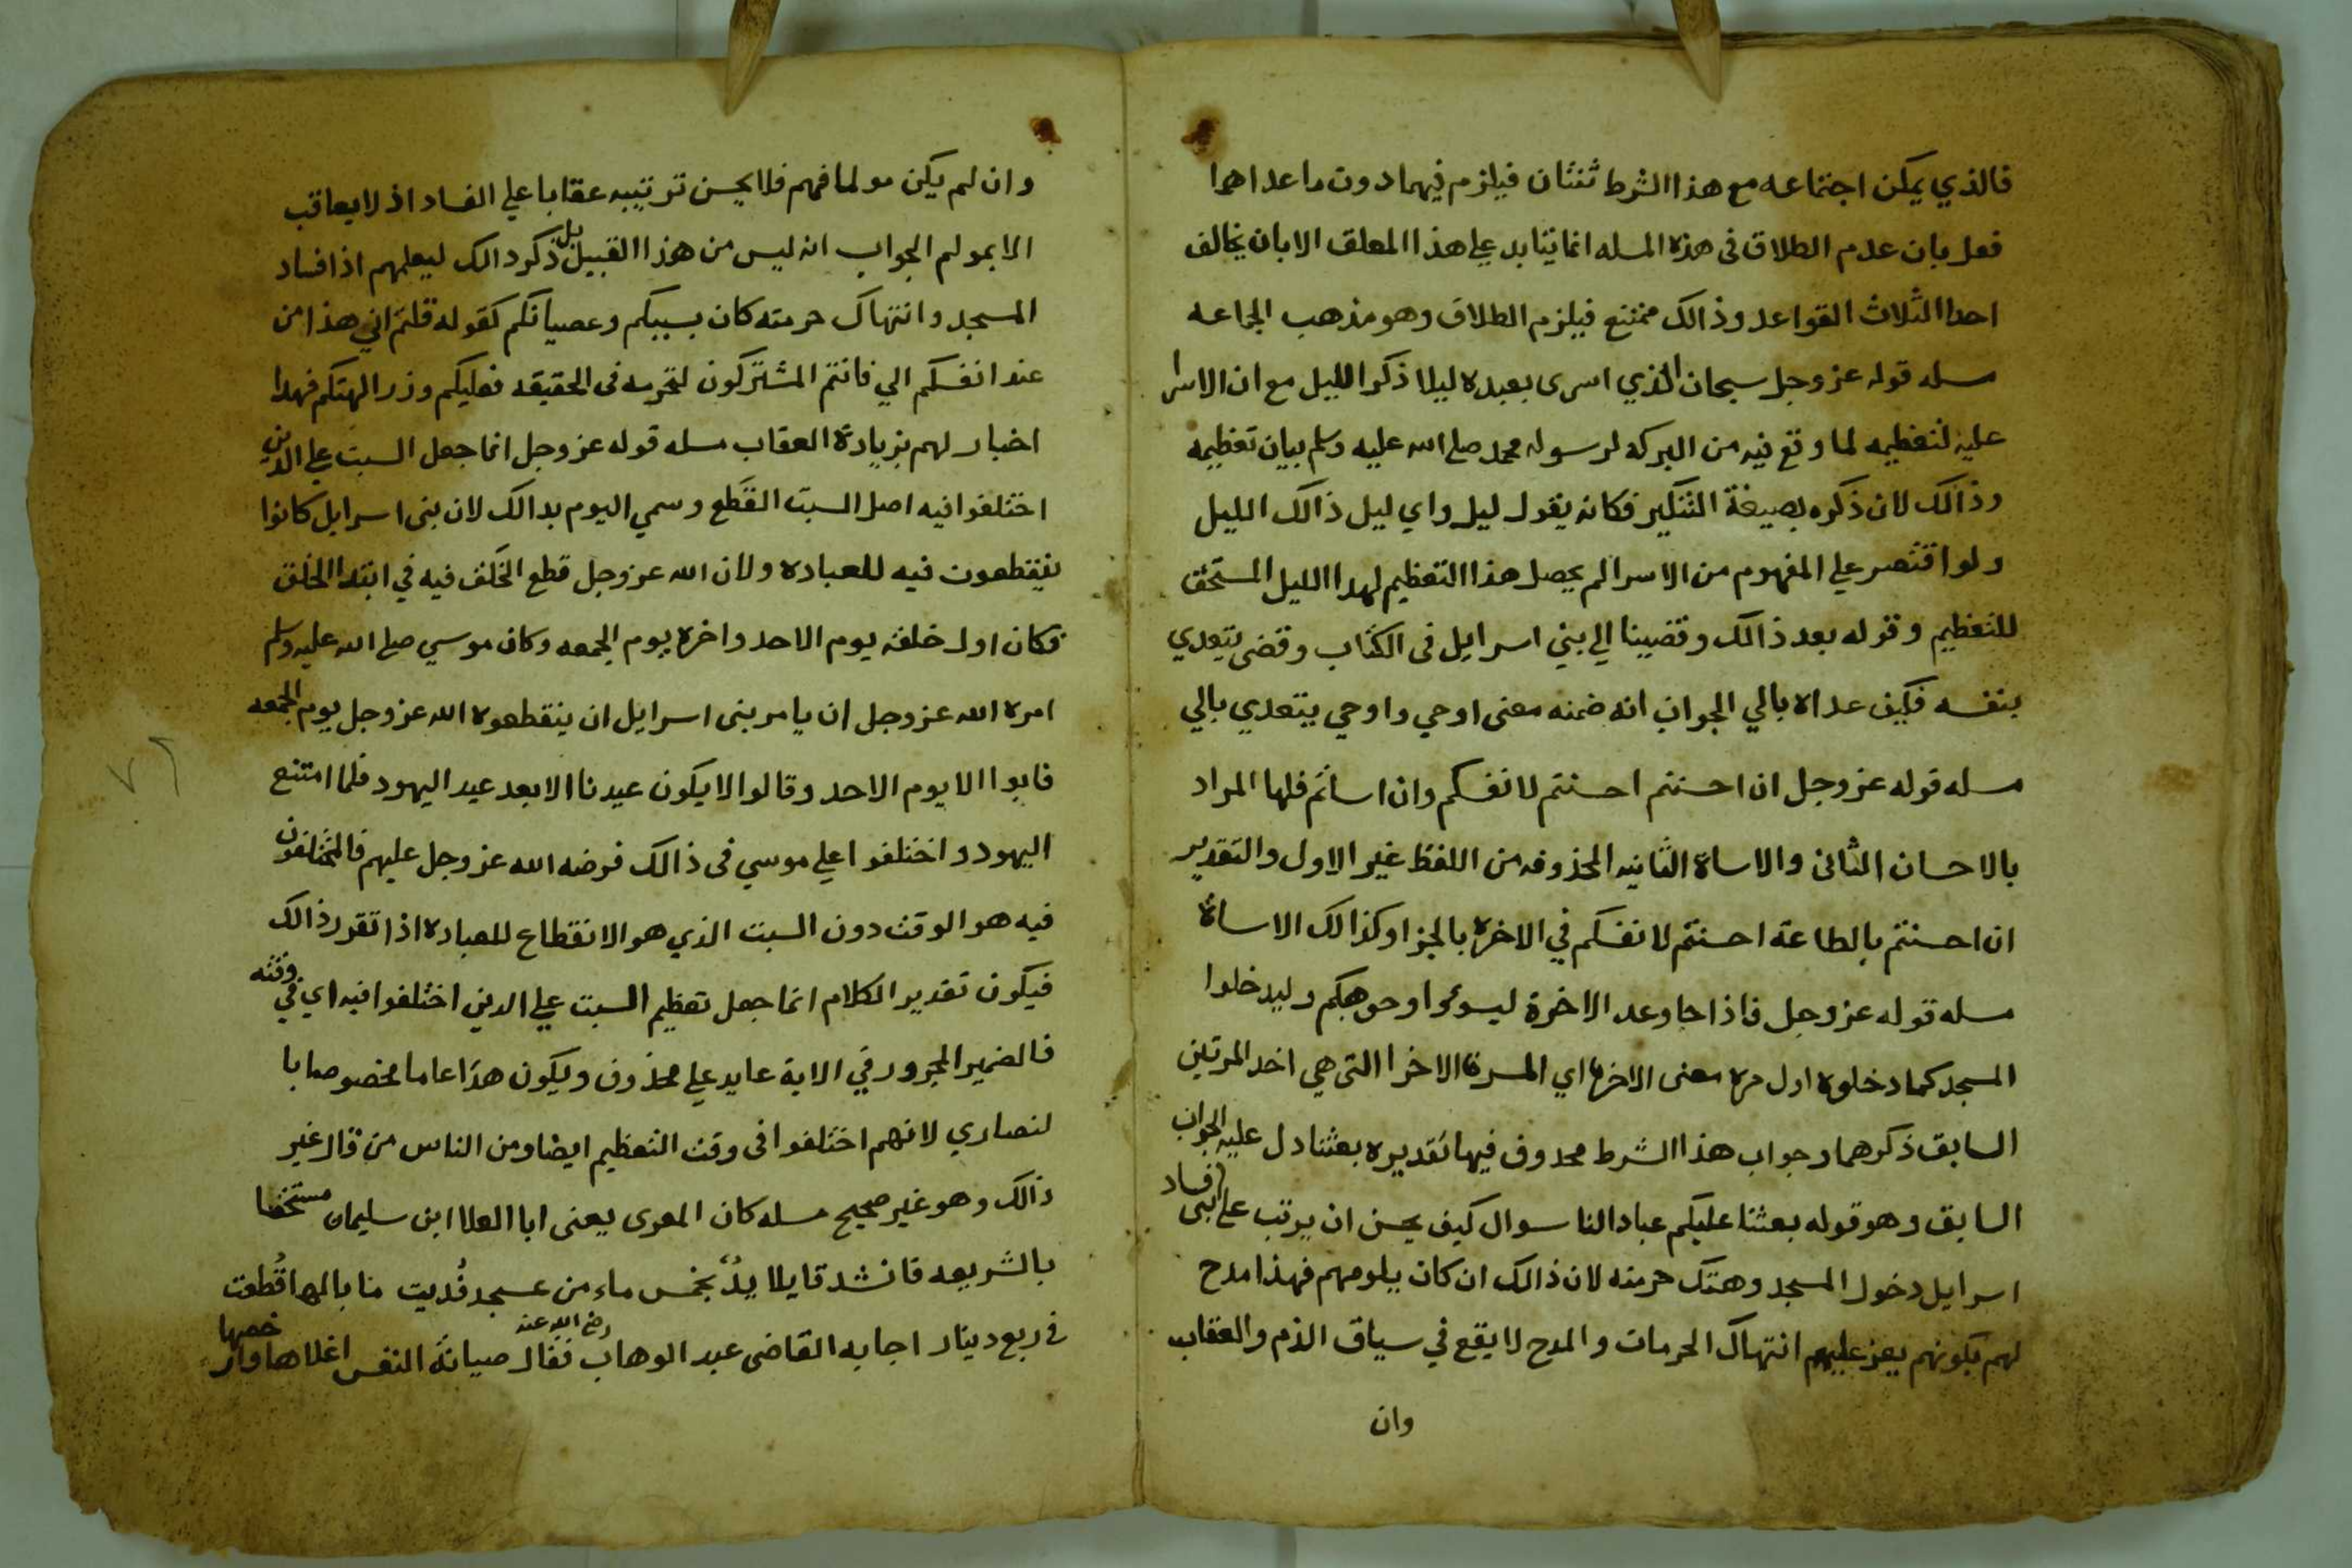 فالذي يمكن اجتماعه مع هذا الشرط ثنتان فيلزم فيهما دون ما عداهما
فعل بان عدم الطلاق فى هذه المسله انما يتابد علي هذا المعلق الا بان يخالف
احدا الثلاث القواعد وذالك ممتنع فيلزم الطلاق وهو مذهب الجماعه
مسله قوله عز وجل سبحان الذي اسرى بعبده ليلا ذكر الليل مع ان الاسرا
عليه لتعظيمه لما وقع فيه من البركه لرسوله محمد صلى الله عليه وسلم بيان تعظيمه
وذالك لان ذكره بصيغة التنكير فكانه يقول ليل واي ليل ذالك الليل
ولو اقتصر علي المفهوم من الاسرا لم يحصل هذا التعظيم لهدا الليل المستحق
للتعظيم وقوله بعد ذالك وقضينا الي بني اسرايل فى الكتاب وقضى يتعدي
بنفسه فكيف عداه بالي الجواب انه ضمنه معنى اوحي واوحي يتعدي بالي
مسله قوله عز وجل ان احسنتم احسنتم لانفسكم وان اساتم فلها المراد
بالاحسان الثانى والاساة الثانيه المحذوفه من اللفظ غير الاول والتقدير
ان احسنتم بالطاعة احسنتم لانفسكم في الاخرة بالجزا وكذالك الاساة
مسله قوله عز وجل فاذا جا وعد الاخرة ليسوءوا وجوهكم وليدخلوا
المسجد كما دخلوه اول مرة معنى الاخرة اي المرة الاخرا التى هي احد المرتين
السابق ذكرهما وجواب هذا الشرط محدوف فيها تقديره بعثنا دل عليه الجواب
السابق وهو قوله بعثنا عليكم عبادا لنا سوال كيف يحسن ان يرتب على افساد بنى
اسرايل دخول المسجد وهتك حرمته لان ذالك ان كان يولمهم فهذا مدح
لهم بكونهم يعز عليهم انتهاك الحرمات والمدح لا يقع في سياق الذم والعقاب
وان
وان لم يكن مولما فهم فلا يحسن ترتيبه عقابا علي الفساد اذ لا يعاقب
الا بمولم الجواب انه ليس من هذا القبيل بل ذكر دالك ليعلمهم اذ افساد
المسجد وانتهاك حرمته كان بسببكم وعصيانكم كقوله قلتم اني هذا من
عند انفسكم الي فانتم المشتركون لتحرمه فى الحقيقه فعليكم وزر الهتكم فهدا
اخبار لهم بزيادة العقاب مسله قوله عز وجل انما جعل السبت علي الدين
اختلفوا فيه اصل السبت القطع وسمي اليوم بدالك لان بنى اسرايل كانوا
ينقطعون فيه للعباده ولان الله عز وجل قطع الخلف فيه في ابتدا الخلق
فكان اول خلقه يوم الاحد واخره يوم الجمعه وكان موسي صلى الله عليه وسلم
امره الله عز وجل ان يامر بنى اسرايل ان ينقطعوه الله عز وجل يوم الجمعه
فابوا الا يوم الاحد وقالوا لا يكون عيدنا الا بعد عيد اليهود فلما امتنع
اليهود واختلفوا علي موسي فى ذالك فرضه الله عز وجل عليهم فالمختلفون
فيه هو الوقت دون السبت الذي هو الانقطاع للعباده اذا تقرر ذالك
فيكون تقدير الكلام انما جعل تعظيم السبت علي الدين اختلفوا فيه اي في وقته
فالضمير المجرور في الاية عايد علي محذوف ويكون هذا عاما مخصوصا با
لنصاري لانهم اختلفوا فى وقت التعظيم ايضا ومن الناس من قال غير
ذالك وهو غير صحيح مسله كان المعرى يعنى ابا العلا ابن سليمان مستخفا
بالشريعه فانشد قايلا يدٌ بخمس ماء من عسجد فُديت ما بالها قُطعت
في ربع دينار اجابه القاضى عبد الوهاب رضي الله عنه فقال صيانة النفس اغلاها وار خصها